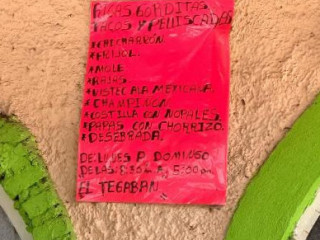 RICAS GORDITAS
TACOS Y PELLISCADAS
*CHICHARRON.
*FRIJOL.
*MOLE
*RAJAS.
*VISTEC ALA MEXICALA.
*CHAMPIÑON.
*COSTILLA CON NOPALES.
*PAPAS CON CHORRIZO.
*DESEBRADA.
DE LUNES A DOMINGO
DE LAS 8:30 A 5:00
EL TEGABAN